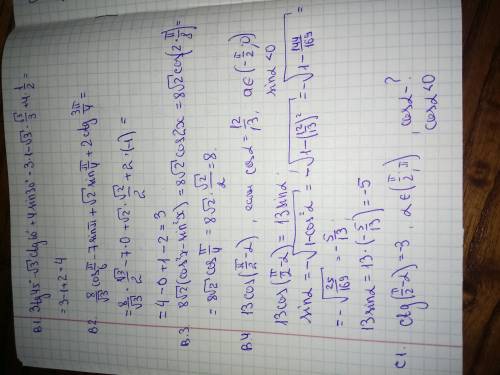 В1. 3tg45° - √3 ctg60° + 4 sin30° = 3·1 - √3·√3/3 + 4·1/2 =
= 3 - 1 + 2 = 4
В2. 8/√3 cos π/6 - 7 sin π + √2 sin π/4 + 2 ctg 3π/4 =
= 8/√3 · √3/2 - 7·0 + √2·√2/2 + 2·(-1) =
= 4 - 0 + 1 - 2 = 3
В.3. 8√2(cos²x - sin²x) = 8√2 cos2x = 8√2 cos(2·π/8) =
= 8√2 cos π/4 = 8√2·√2/2 = 8.
В4. 13cos(π/2 - α), если cosα = 12/13, α∈(-π/2; 0)
13cos(π/2 - α) = 13 sinα. sinα < 0
sinα = -√1-cos²α = -√1-(12/13)² = -√1-144/169 =
= -√25/169 = -5/13.
13 sinα = 13·(-5/13) = -5
С1. ctg(π/2 - α) = -3, α∈(π/2; π), cosα - ?
cosα < 0